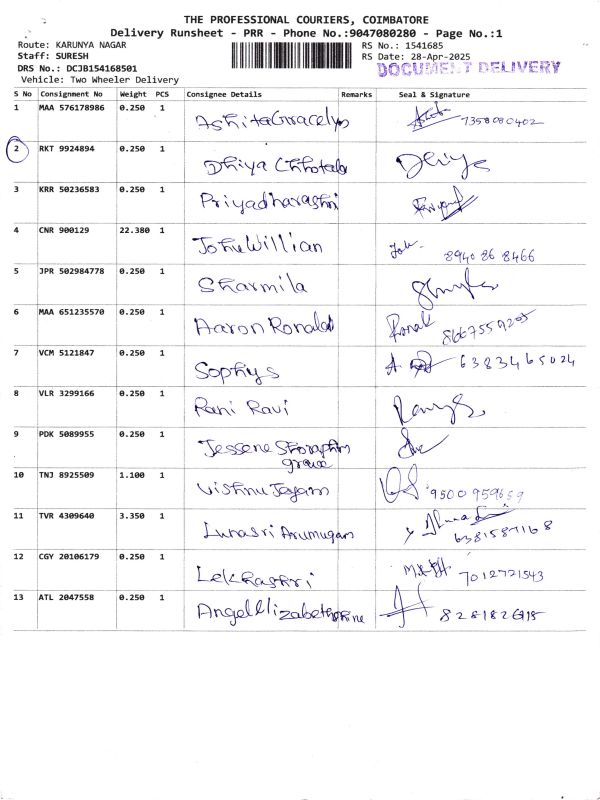 THE PROFESSIONAL COURIERS, COIMBATORE
Delivery Runsheet - PRR - Phone No.:9047080280 - Page No.:1
Route: KARUNYA NAGAR RS No.: 1541685
Staff: SURESH RS Date: 28-Apr-2025
DRS No.: DCJB154168501 DOCUMENT DELIVERY
Vehicle: Two Wheeler Delivery
S No Consignment No Weight PCS Consignee Details Remarks Seal & Signature
1 MAA 576178986 0.250 1 AshitaGracelyn 7358080402
2 RKT 9924894 0.250 1 Dhiya Chhotala Dhiya
3 KRR 50236583 0.250 1 Priyadharashri
4 CNR 900129 22.380 1 John Willian 8940 86 8466
5 JPR 502984778 0.250 1 Sharmila
6 MAA 651235570 0.250 1 Aaron Ronald Ronak 8667559205
7 VCM 5121847 0.250 1 Sophys 6383465024
8 VLR 3299166 0.250 1 Rani Ravi
9 PDK 5089955 0.250 1 Jessene
grace
10 TNJ 8925509 1.100 1 Vishnu Jayam 9500959659
11 TVR 4309640 3.350 1 Lunasri Arumugam
12 CGY 20106179 0.250 1 Lekhashri 7012721543
13 ATL 2047558 0.250 1